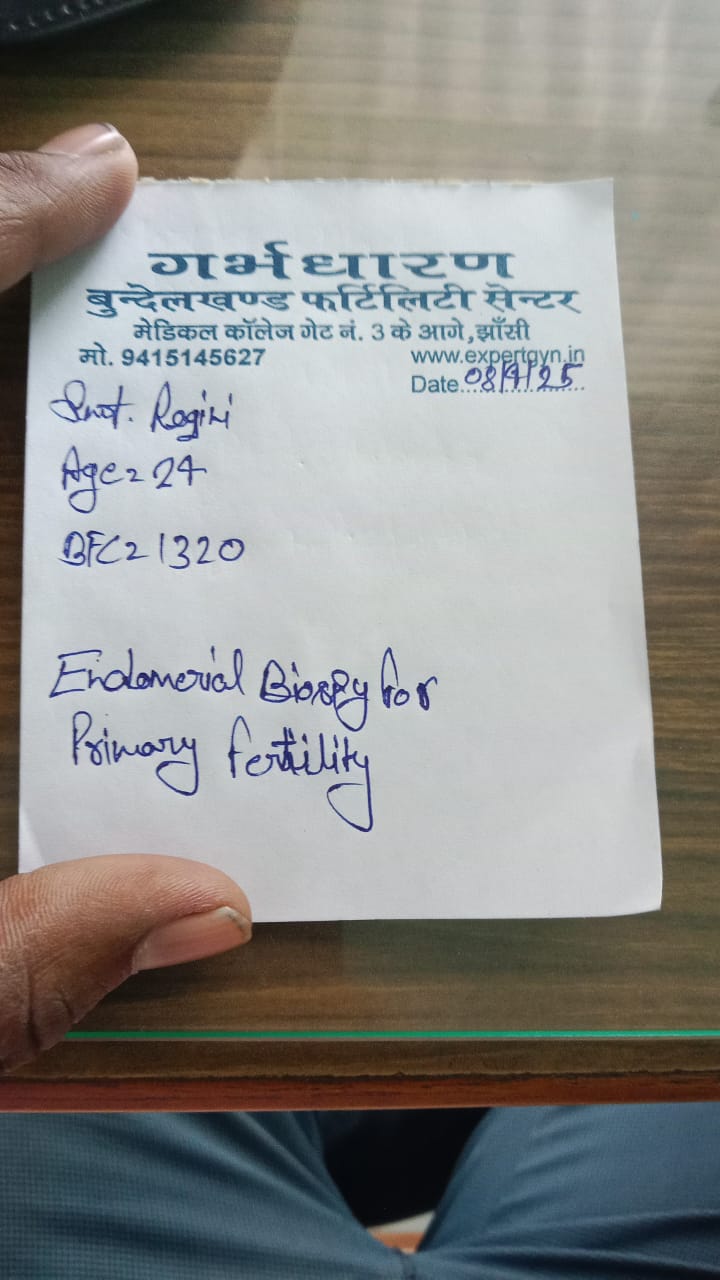 गर्भधारण
बुन्देलखण्ड फर्टिलिटी सेन्टर
मेडिकल कॉलेज गेट नं. 3 के आगे, झाँसी
मो. 9415145627 www.expertgyn.in
Date 08/4/25
Smt. Ragini
Age = 24
BFC = 1320
Endomerial Biospy for
Primary fertility